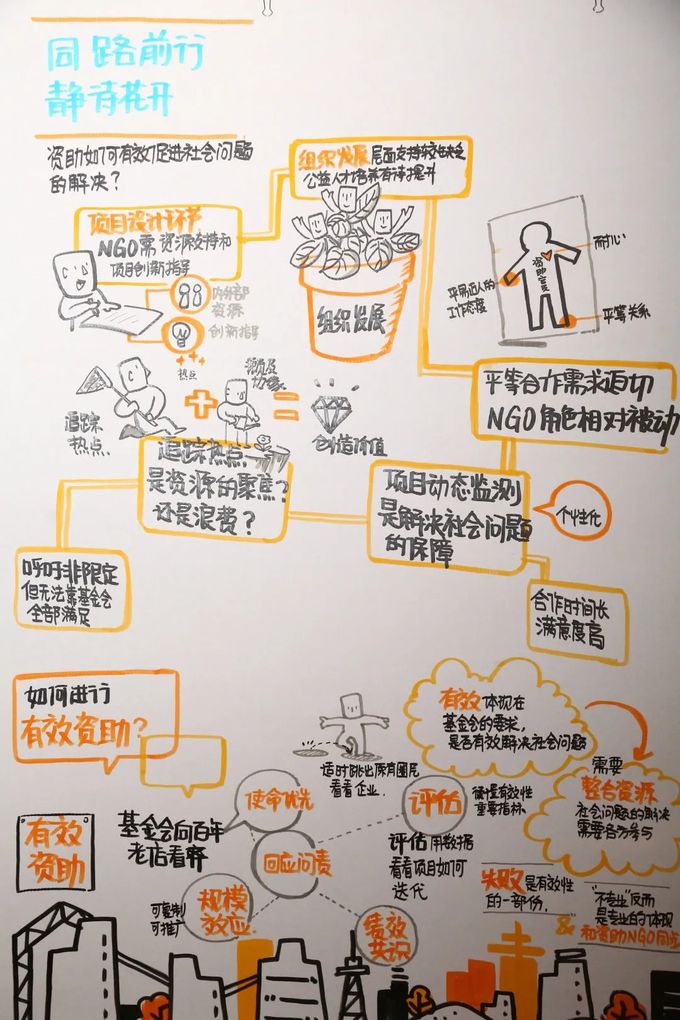 同路前行
静待花开
资助如何有效促进社会问题
的解决？
组织发展层面支持较缺乏
公益人才培养有待提升
项目设计环节
NGO需资源支持和
项目创新指导
内外部
资源
创新指导
热点
组织发展
资助官员
耐心
平易近人的
工作态度
平等关系
追踪
热点
边缘
创造价值
平等合作需求迫切
NGO角色相对被动
追踪热点
是资源的聚焦？
还是浪费？
项目动态监测
是解决社会问题
的保障
个性化
呼吁非限定
但无法靠基金会
全部满足
合作时间长
满意度高
如何进行
有效资助？
有效体现在
基金会的要求，
是否有效解决社会问题
适时跳出原有圈层
看看企业.
需要
整合资源
社会问题的解决
需要各方参与
使命优先
评估
衡量有效性
重要指标.
有效
资助
基金会向百年
老店看齐
回应问责
评估用数据
看看项目如何
迭代
规模
效应
可复制
可推广
绩效
共识
失败是有效性
的一部份.
&
“不专业”反而
是专业的体现
和资助NGO同应